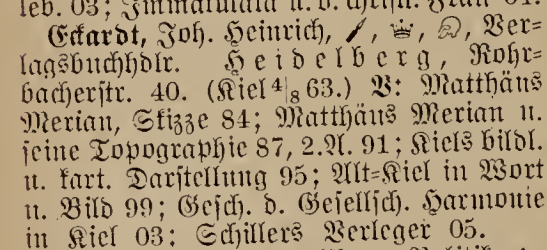 leb. 03; Immakulata u. d. christl. Frau 01.
Eckardt, Joh. Heinrich, Ver-
lagsbuchhdlr. Heidelberg, Rohr-
bacherstr. 40. (Kiel 4/8 63.) V: Matthäus
Merian, Skizze 84; Matthäus Merian u.
seine Topographie 87, 2.A. 91; Kiels bildl.
u. kart. Darstellung 95; Alt-Kiel in Wort
u. Bild 99; Gesch. d. Gesellsch. Harmonie
in Kiel 03; Schillers Verleger 05.